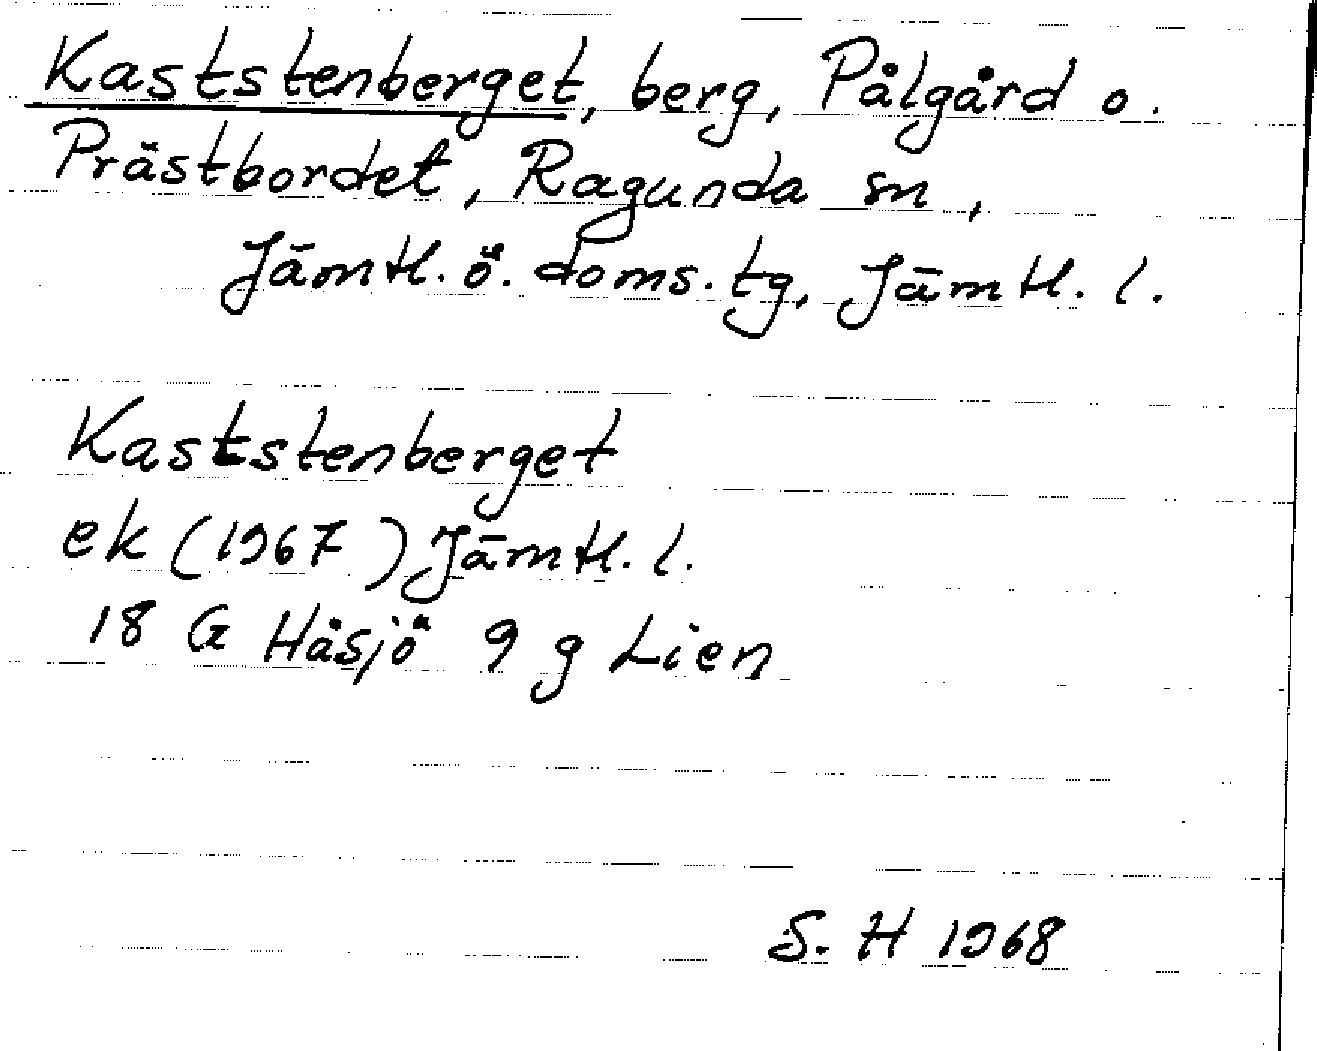 Kaststenberget, berg, Pålgård o.
Prästbordet, Ragunda sn,
Jämtl. ö. doms. tg, Jämtl. l.
Kaststenberget
ek (1967) Jämtl. l.
18 G Håsjö 9 g Lien
S. H 1968